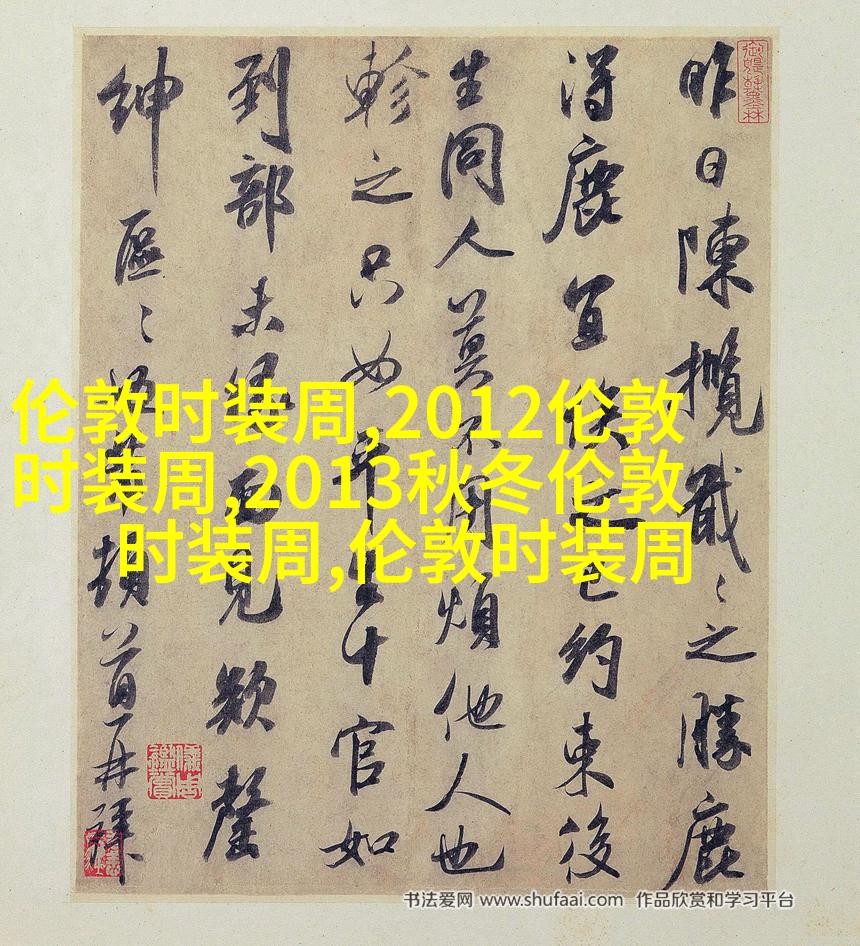 昨日陳攬戢〻之勝鹿
得鹿宜已約束後
生同人莫不煩他人也
軫之只如平生十官如
到部未面見欵罄
紳區〻頓首再拜
伦敦时装周,2012伦敦
时装周,2013秋冬伦敦
时装周,伦敦时装周
书法爱网 www.shufaai.com 作品欣赏和学习平台